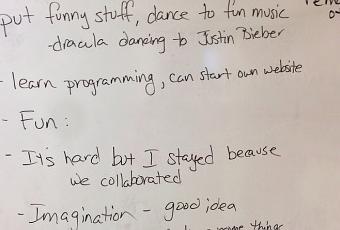 put funny stuff, dance to fun music
-dracula dancing to Justin Bieber
- learn programming, can start own website
- Fun:
- It's hard but I stayed because
we collaborated
- Imagination - good idea